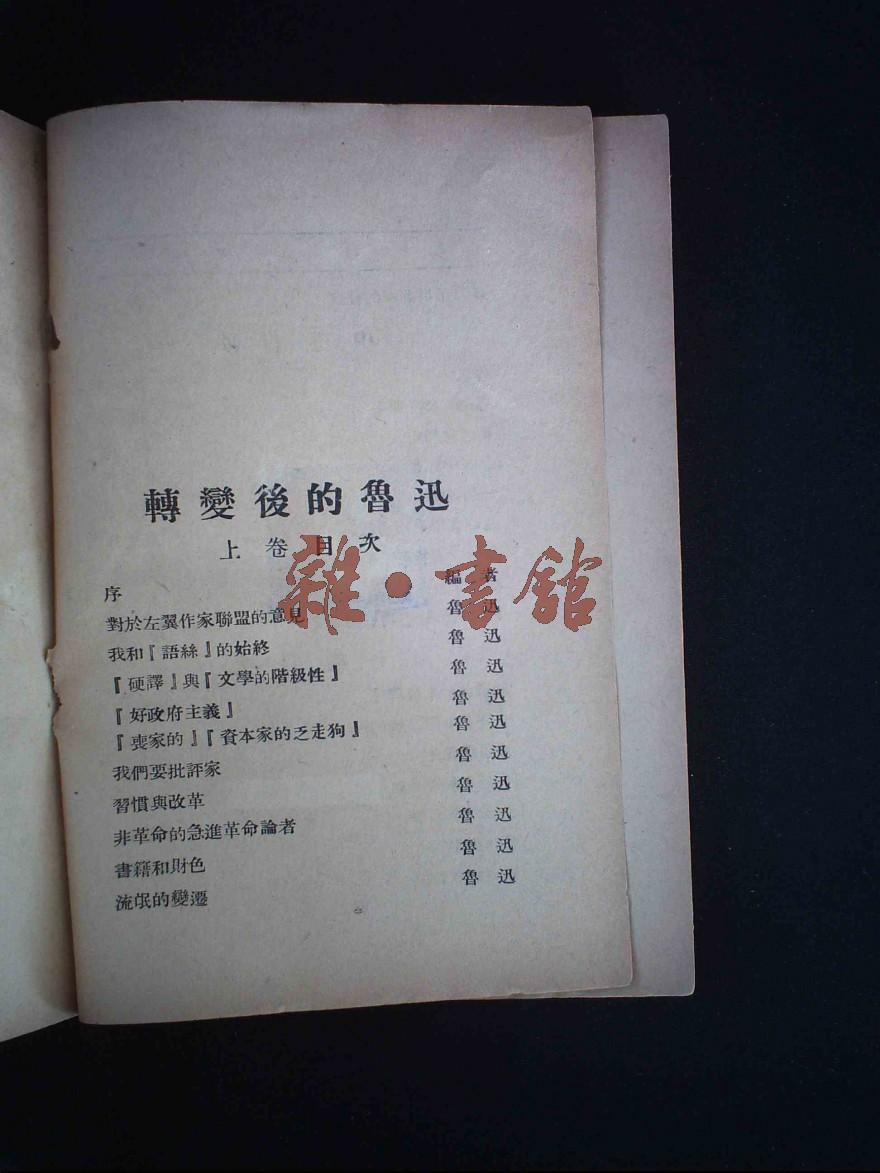 轉變後的魯迅
上卷目次
序 編者
對於左翼作家聯盟的意見 魯迅
我和『語絲』的始終 魯迅
『硬譯』與『文學的階級性』 魯迅
『好政府主義』 魯迅
『喪家的』『資本家的乏走狗』 魯迅
我們要批評家 魯迅
習慣與改革 魯迅
非革命的急進革命論者 魯迅
書籍和財色 魯迅
流氓的變遷 魯迅
雜·書館